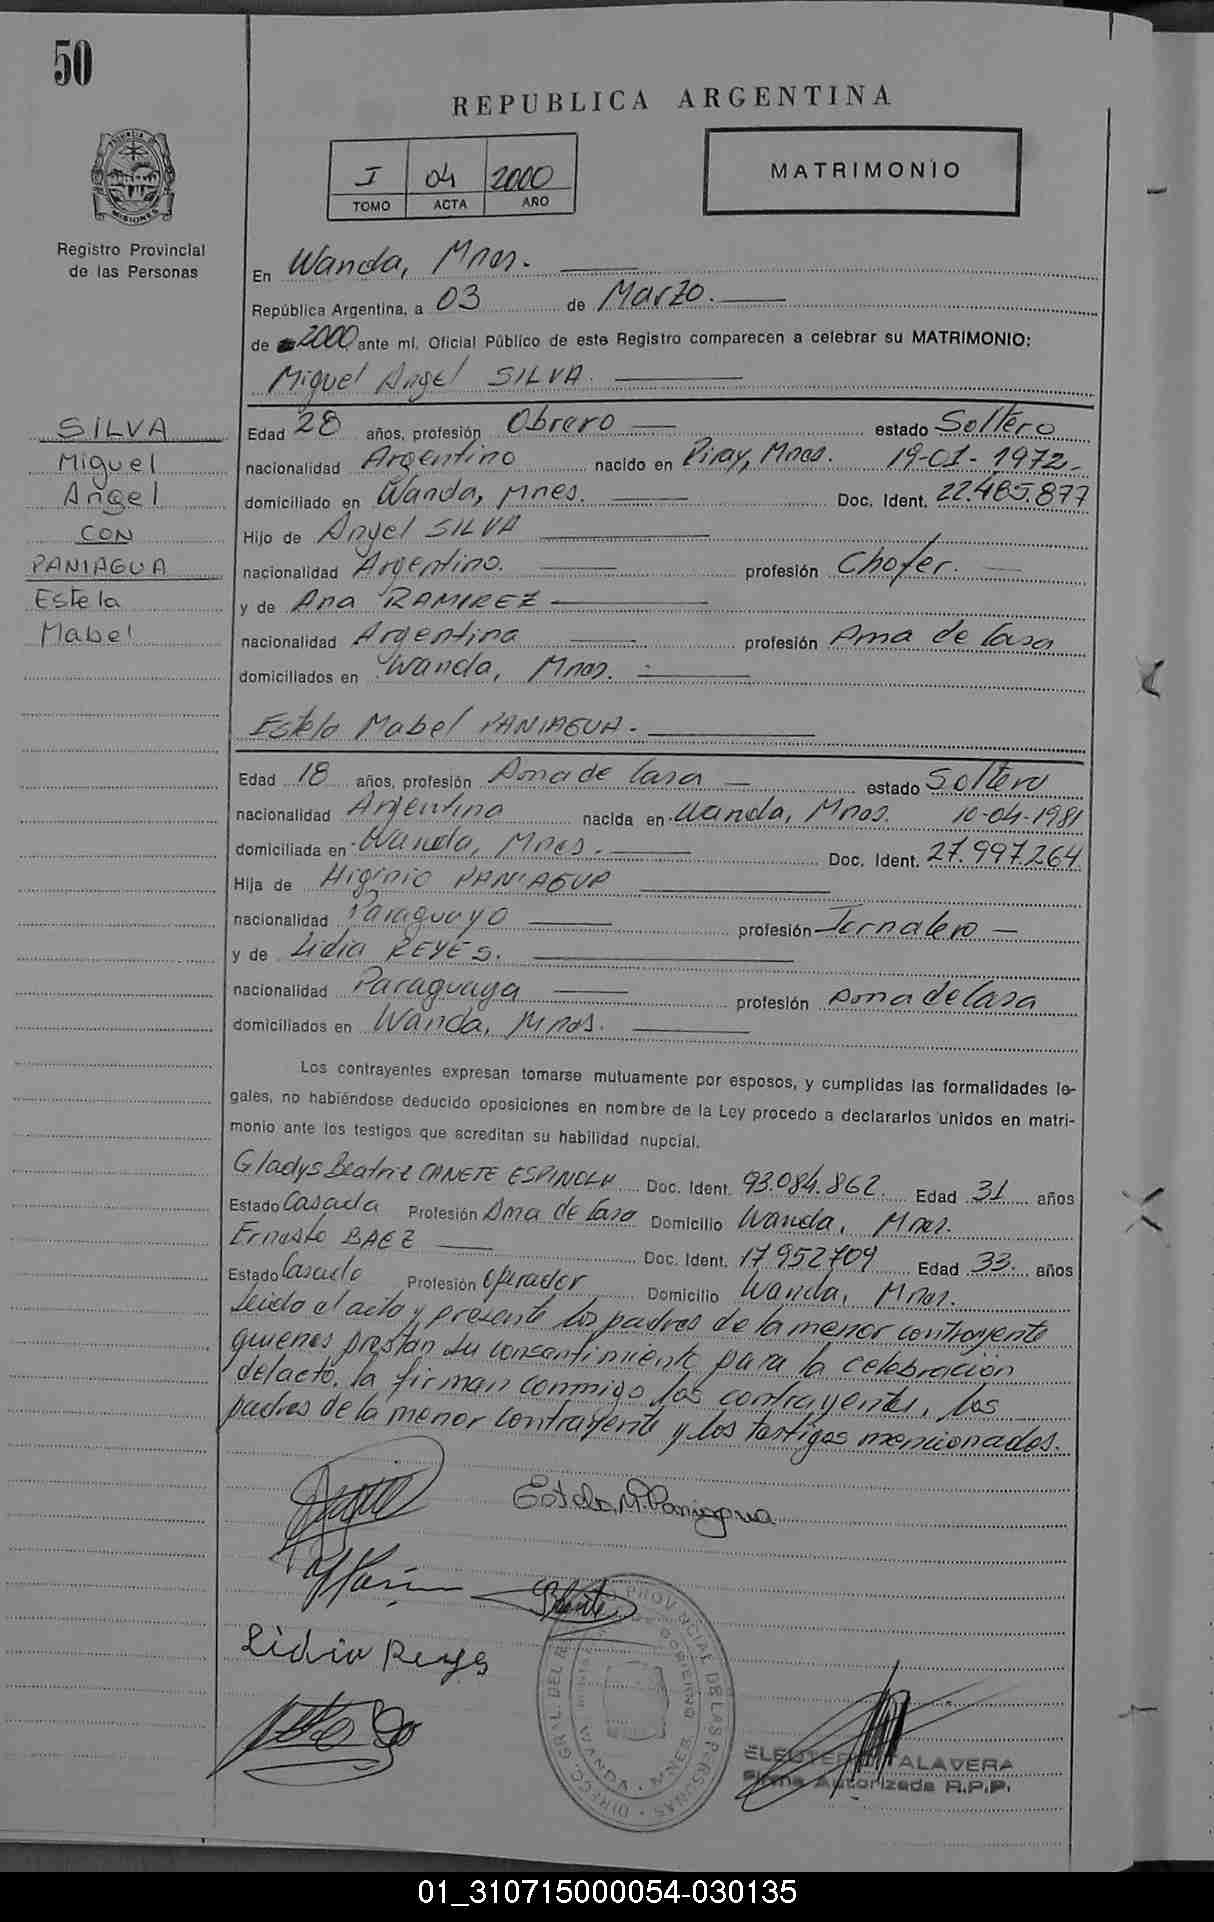 50
REPUBLICA ARGENTINA
PROVINCIA DE MISIONES
Registro Provincial
de las Personas
I 04 2000
TOMO ACTA AÑO
MATRIMONIO
En Wanda, Mnes.
República Argentina, a 03 de Marzo.
de 2000 ante mí, Oficial Público de este Registro comparecen a celebrar su MATRIMONIO:
Miguel Angel SILVA.
SILVA
Miguel
Angel
CON
PANIAGUA
Estela
Mabel
Edad 28 años, profesión Obrero estado Soltero
nacionalidad Argentino nacido en Piray, Mnes. 19-01-1972-
domiciliado en Wanda, Mnes. Doc. Ident. 22.465.877
Hijo de Angel SILVA
nacionalidad Argentino. profesión Chofer.
y de Ana RAMIREZ
nacionalidad Argentina profesión Ama de Casa
domiciliados en Wanda, Mnes.
Estela Mabel PANIAGUA.
Edad 18 años, profesión Ama de Casa estado Soltera
nacionalidad Argentina nacida en Wanda, Mnes. 10-04-1981
domiciliada en Wanda, Mnes. Doc. Ident. 27.997.264
Hija de Higinio PANIAGUA
nacionalidad Paraguayo profesión Jornalero
y de Lidia REYES.
nacionalidad Paraguaya profesión Ama de Casa
domiciliados en Wanda, Mnes.
Los contrayentes expresan tomarse mutuamente por esposos, y cumplidas las formalidades le-
gales, no habiéndose deducido oposiciones en nombre de la Ley procedo a declararlos unidos en matri-
monio ante los testigos que acreditan su habilidad nupcial.
Gladys Beatriz CANETE ESPINOLA Doc. Ident. 93.084.862. Edad 31 años
Estado Casada Profesión Ama de Casa Domicilio Wanda, Mnes.
Ernesto BAEZ Doc. Ident. 17952709 Edad 33. años
Estado Casado Profesión Operador Domicilio Wanda, Mnes.
Leido el acta y presente los padres de la menor contrayente
quienes prestan su consentimiento para la celebración
del acto, la firman conmigo los contrayentes, los
padres de la menor contrayente y los testigos mencionados.
Estela M. Paniagua
Lidia Reyes
DIRECC. GRAL. DEL R. PROVINCIAL DE LAS PERSONAS
WANDA - MNES
ELEUTERIO TALAVERA
Firma Autorizada R.P.P.
01_310715000054-030135